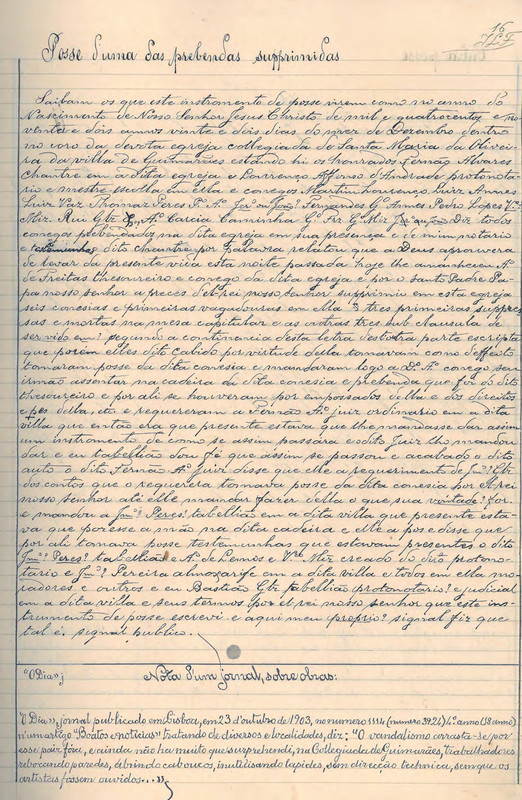 16
Posse d'uma das prebendas supprimidas
Saibam os que este instrumento de posse virem como no anno do
Nascimento de Nosso Senhor Jesus Christo de mil e quatrocentos e no-
venta e dois annos vinte e dois dias do mez de Dezembro dentro
no coro da devota egreja collegiada de Santa Maria da Olivei-
ra da villa de Guimarães estando hi os honrados Fernão Alvares
chantre em a dita egreja e Lourenço Affonso d'Andrade protonota-
rio e mestre escolla em ella e conegos Martim Lourenço Luiz Annes
Luiz Vaz Thomaz Peres Fernandes Gº Annes Pedro Lopes
Miz. Rui Gbz Aº Garcia Caminha Gº Miz Diz todos
conegos prebendados na dita egreja em sua presença e de mim notario
e testemunhas dito chantre por palavra relatou que a Deus aprouvera
de levar da presente vida esta noite passada hoje lhe amanhecen Aº
de Freitas thesoureiro e conego da dita egreja e por o Santo Padre Pa-
pa nosso senhor a preces del-rei nosso senhor supprimiu em esta egreja
seis conesias e primeiras vagadouras em ella 3 tres primeiras suppres-
sas e mortas na mesa capitular e as outras tres sub clausula de
servido em segundo a continencia desta letra desoutra parte escripta
que porém elles dito cabido por virtude della tomavam como de effecto
tomaram posse da dita conesia e mandaram logo a Dº Aº conego seu
irmão assentar na cadeira da dita conesia e prebenda que foi do dito
thesoureiro e por ali se houveram por empossados della e dos direitos
e della, etc. e requereram a Fernão Aº juiz ordinario em a dita
villa que então era que presente estava que lhe mandasse dar assim
um instrumento de como se assim passára e o dito Juiz lho mandou
dar e eu tabellião dou fé que assim se passou e acabado o dito
auto o dito Fernão Aº Juiz disse que elle a requerimento de Gbz
dos contos que o requerera tomava posse da dita conesia por el-rei
nosso senhor até elle mandar fazer della o que sua vontade for.
e mandou a Peres tabellião em a dita villa que presente esta-
va que pozesse a mão na dita cadeira e elle a pos e disse que
por ali tomava posse testemunhas que estavam presentes o dito
Peres tabellião e Aº de Lemos e Vº Miz creado do dito protono-
tario e Pereira almoxarife em a dita villa e todos em ella mo-
radores e outros e eu Bastião Gbz tabellião protonotario e judicial
em a dita villa e seus termos por el-rei nosso senhor que este ins-
trumento de posse escrevi e aqui meu proprio signal fiz que
tal é. signal publico.
"O Dia"; Nota d'um jornal, sobre obras:
"O Dia", jornal publicado em Lisboa, em 23 d'outubro de 1903, no numero 1114 (numero 3924) 4º anno (18 anno)
n'um artigo "Boatos e noticias" tratando de diversos e localidades, diz: "O vandalismo arrasta-se por
esse paiz fóra, e ainda não ha muito que surprehendi, na Collegiada de Guimarães, trabalhadores
rebocando paredes, abrindo caboucos, inutilisando lapides, sem direcção technica, sem que os
artistas fossem ouvidos..."